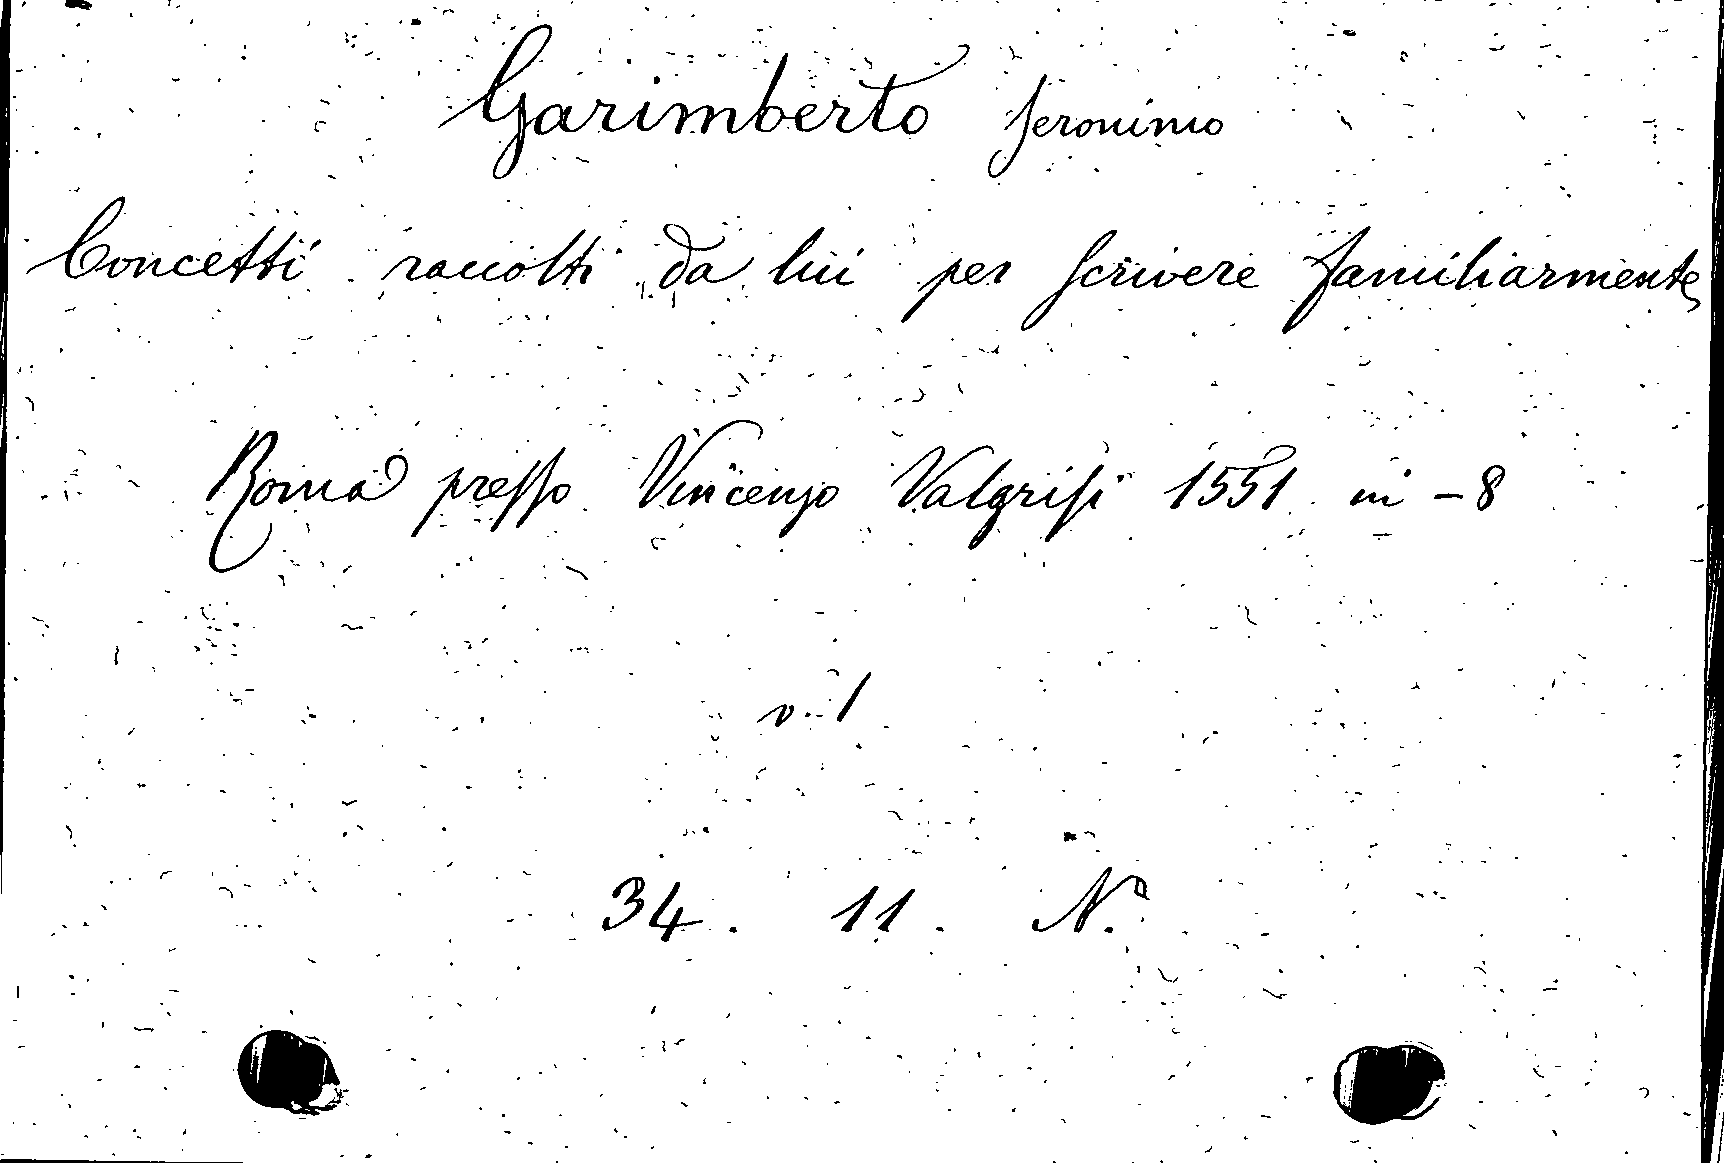 Garimberto Jeronimo
Concetti raccolti da lui per scrivere familiarmente
Roma presso Vincenzo Valgrisi 1551 in-8
v. 1
34. 11. N.